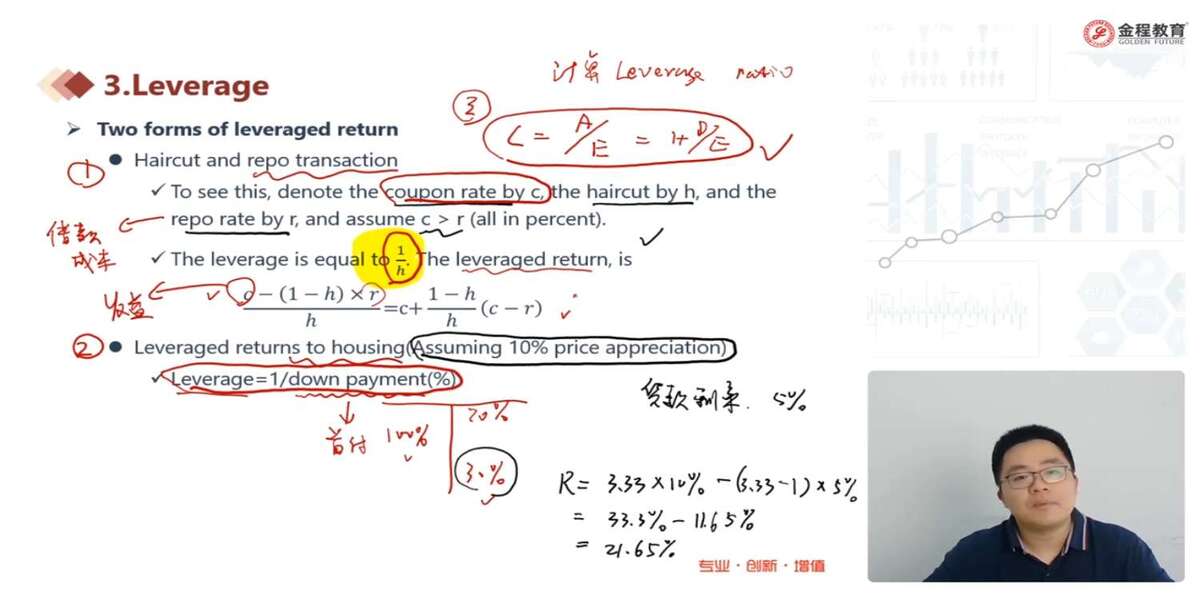 金程教育
GOLDEN FUTURE
计算 Leverage ratio
3.Leverage
③ L = A/E = 1+ D/E
Two forms of leveraged return
① Haircut and repo transaction
To see this, denote the coupon rate by c, the haircut by h, and the
repo rate by r, and assume c > r (all in percent).
借款
成本
The leverage is equal to 1/h. The leveraged return, is
收益
c − (1 − h) × r / h =c+ 1 − h / h (c − r)
② Leveraged returns to housing(Assuming 10% price appreciation)
Leverage=1/down payment(%)
贷款利率 5%
首付 100%
70%
30%
R = 3.33 × 10% − (3.33 − 1) × 5%
= 33.3% − 11.65%
= 21.65%
专业·创新·增值